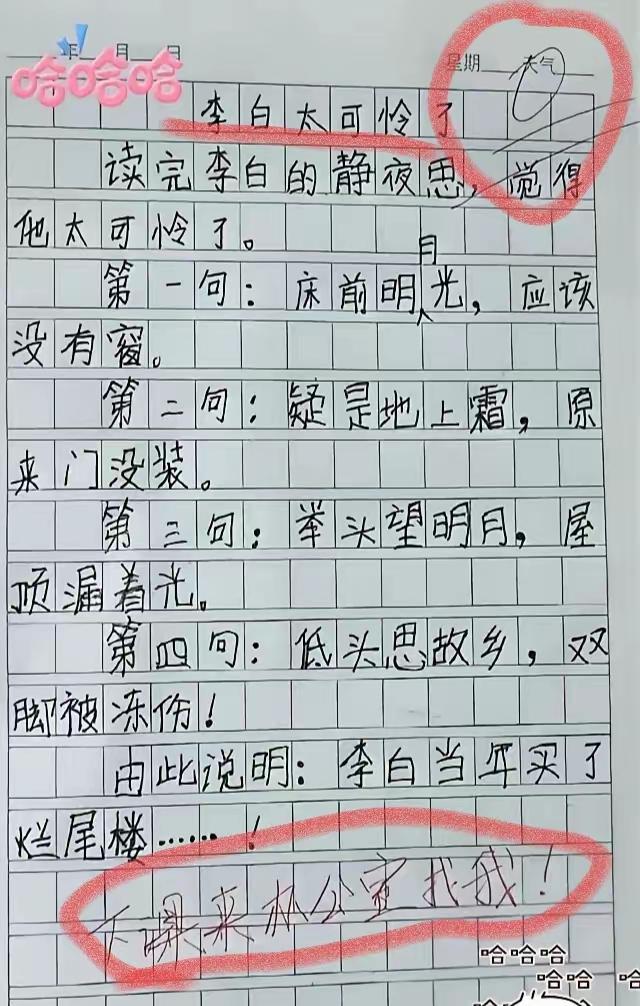 年 月 日 星期 天气
哈哈哈
李白太可怜了
0
读完李白的静夜思，觉得
他太可怜了。
第一句：床前明月光，应该
没有窗。
第二句：疑是地上霜，原
来门没装。
第三句：举头望明月，屋
顶漏着光。
第四句：低头思故乡，双
脚被冻伤！
由此说明：李白当年买了
烂尾楼……！
下课来办公室找我！
哈哈哈
哈哈哈 哈